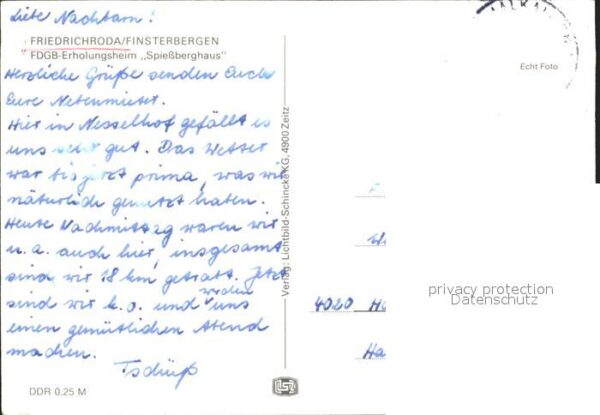 Liebe Nachbarn!
FRIEDRICHRODA/FINSTERBERGEN
FDGB-Erholungsheim „Spießberghaus"
Herzliche Grüße senden Euch
Eure Nebenmieter.
Hier in Nesselhof gefällt es
uns sehr gut. Das Wetter
war bis jetzt prima, was wir
natürlich genutzt haben.
Heute Nachmittag waren wir
u. a. auch hier, insgesamt
sind wir 18 km getrabt. Jetzt
sind wir k.o. und werden uns
einen gemütlichen Abend
machen.
Tschüß
DDR 0.25 M
Verlag: Lichtbild-Schincke KG, 4900 Zeitz
Echt Foto
4020
Ha
privacy protection
Datenschutz